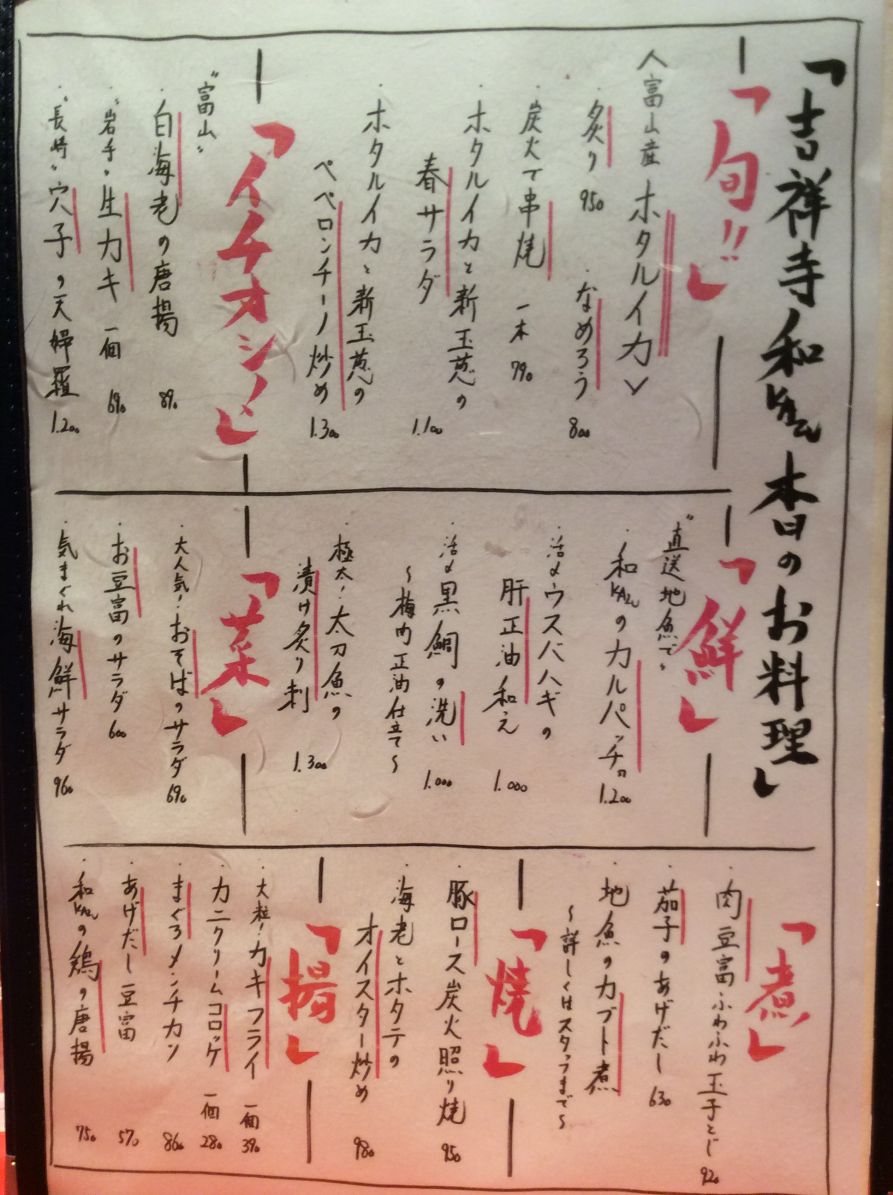 「吉祥寺 和KAZU 本日のお料理」
「旬!!」
富山産 ホタルイカ
・炙り 950
・なめろう 800
・炭火で串焼 一本 790
・ホタルイカと新玉葱の
春サラダ 1.100
・ホタルイカと新玉葱の
ペペロンチーノ炒め 1.300
「イチオシ!」
"富山"
・白海老の唐揚 890
・"岩手" 生カキ 一個 690
・"長崎" 穴子の天婦羅 1.200
「鮮」
"直送地魚で"
・和KAZUのカルパッチョ 1.200
・活〆ウスバハギの
肝正油和え 1.000
・活〆黒鯛の洗い 1.000
〜梅肉正油仕立て〜
・極太!太刀魚の
漬け炙り刺 1.300
「菜」
・大人気!おそばのサラダ 690
・お豆富のサラダ 600
・気まぐれ海鮮サラダ 960
「煮」
・肉豆富ふわふわ玉子とじ 920
・茄子のあげだし 630
・地魚のカブト煮
〜詳しくはスタッフまで〜
「焼」
・豚ロース炭火照り焼 950
・海老とホタテの
オイスター炒め 980
「揚」
・大粒!カキフライ 一個 390
・カニクリームコロッケ 一個 280
・まぐろメンチカツ 860
・あげだし豆富 570
・和KAZUの鶏の唐揚 750